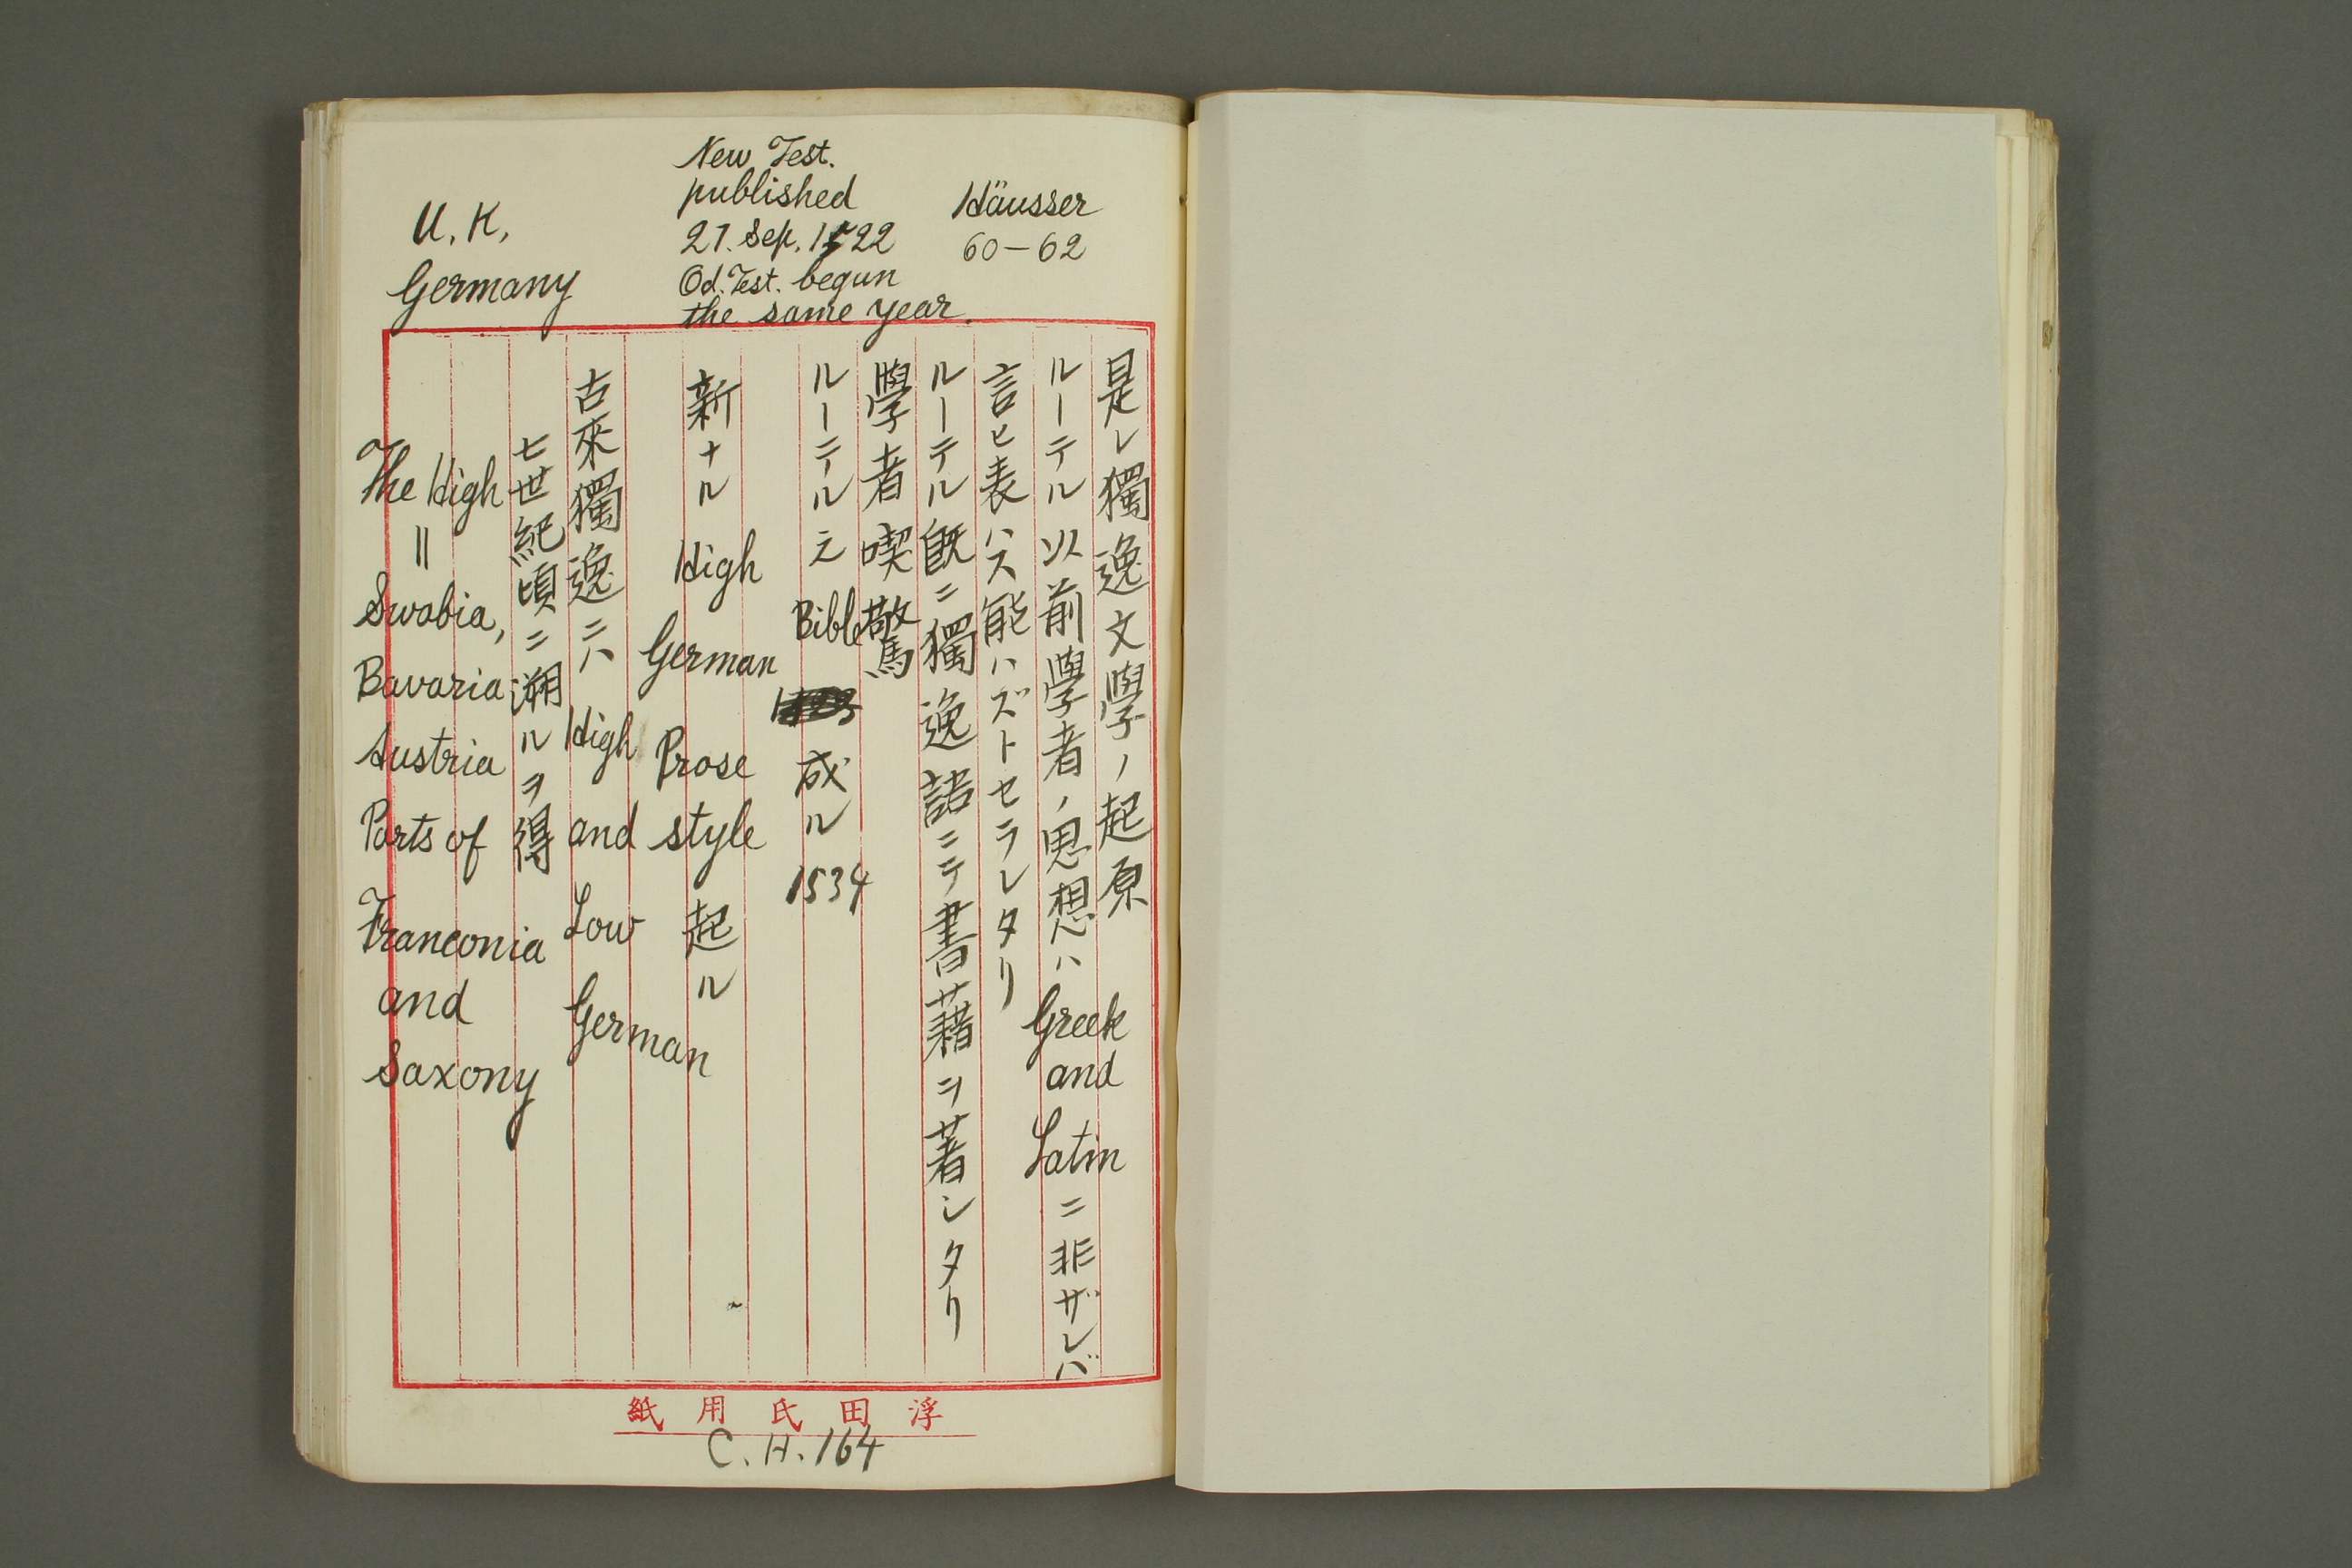 Häusser
60-62
New Test.
published
21. Sep. 1522
Od. Test. begun
the same year.
U. K,
Germany
是レ獨逸文學ノ起原
ルーテル以前學者ノ思想ハ Greek and Latin ニ非ザレバ
言ヒ表ハス能ハズトセラレタリ
ルーテル既ニ獨逸語ニテ書藉ヲ著シタリ
學者喫驚
ルーテル之 Bible 成ル 1534
新ナル High German Prose style 起ル
古來獨逸ニハ High and Low German
七世紀頃ニ溯ルヲ得
The High
=
Swabia,
Bavaria
Austria
Parts of
Franconia
and
Saxony
浮田氏用紙
C. H. 164